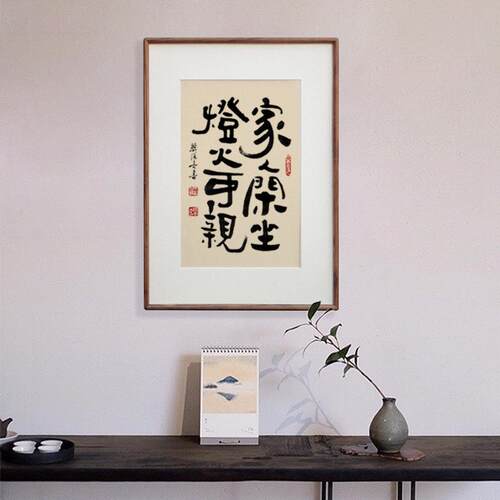 家人閑坐
燈火可親